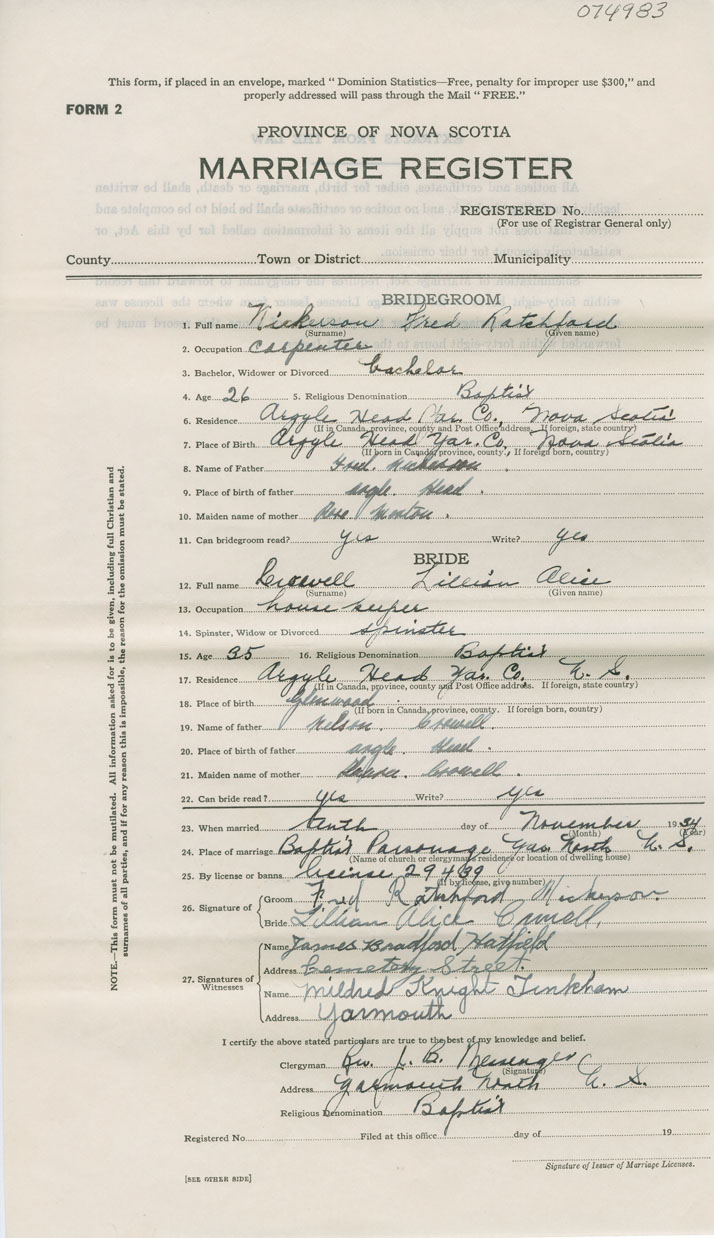 074983
This form, if placed in an envelope, marked "Dominion Statistics—Free, penalty for improper use $300," and
properly addressed will pass through the Mail "FREE."
FORM 2
PROVINCE OF NOVA SCOTIA
MARRIAGE REGISTER
REGISTERED No.
(For use of Registrar General only)
County Town or District Municipality
BRIDEGROOM
1. Full name Nickerson Fred Ratchford
(Surname) (Given name)
2. Occupation carpenter
3. Bachelor, Widower or Divorced bachelor
4. Age 26 5. Religious Denomination Baptist
6. Residence Argyle Head Yar. Co., Nova Scotia
(If in Canada, province, county and Post Office address. If foreign, state country)
7. Place of Birth Argyle Head Yar. Co. Nova Scotia
(If born in Canada, province, county. If foreign born, country)
8. Name of Father Fred. Nickerson
9. Place of birth of father argle Head.
10. Maiden name of mother Rose Morton.
11. Can bridegroom read? yes Write? yes
BRIDE
12. Full name Crowell Lillian Alice
(Surname) (Given name)
13. Occupation house keeper
14. Spinster, Widow or Divorced spinster
15. Age 35 16. Religious Denomination Baptist
17. Residence Argyle Head Yar. Co., N. S.
(If in Canada, province, county and Post Office address. If foreign, state country)
18. Place of birth Glenwood
(If born in Canada, province, county. If foreign born, country)
19. Name of father Nelson. Crowell.
20. Place of birth of father argle Head.
21. Maiden name of mother Crowell.
22. Can bride read? yes Write? yes
23. When married tenth day of November 1934
(Month) (Year)
24. Place of marriage Baptist Parsonage Yar. North N. S.
(Name of church or clergyman's residence or location of dwelling house)
25. By license or banns license 29439
(If by license, give number)
26. Signature of
Groom Fred Ratchford Nickerson.
Bride Lillian Alice Crowell.
27. Signatures of
Witnesses
Name James Bradford Hatfield
Address Cemetery Street.
Name Mildred Knight Tinkham
Address Yarmouth
I certify the above stated particulars are true to the best of my knowledge and belief.
Clergyman Rev. L. B. Messenger
(Signature)
Address Yarmouth North N. S.
Religious Denomination Baptist
Registered No. Filed at this office day of 19
Signature of Issuer of Marriage Licenses.
[SEE OTHER SIDE]
NOTE.—This form must not be mutilated. All information asked for is to be given, including full Christian and
surnames of all parties, and if for any reason this is impossible, the reason for the omission must be stated.